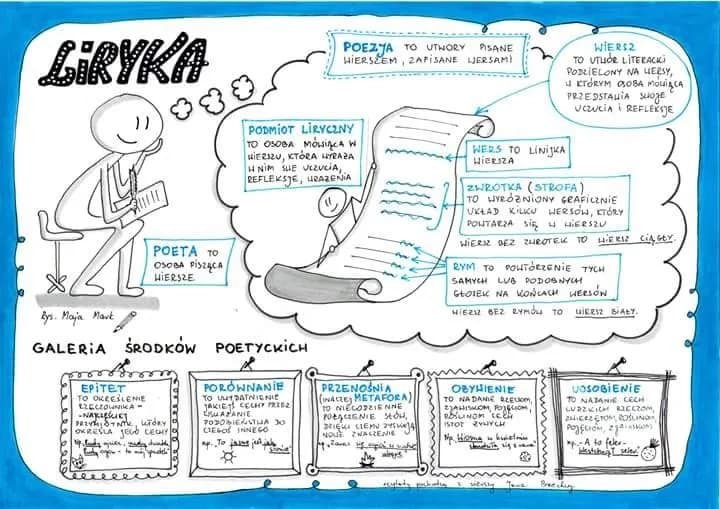 LIRYKA
POEZJA TO UTWORY PISANE
WIERSZEM, ZAPISANE WERSAMI
WIERSZ
TO UTWÓR LITERACKI
PODZIELONY NA WERSY,
W KTÓRYM OSOBA MÓWIĄCA
PRZEDSTAWIA SWOJE
UCZUCIA I REFLEKSJE
PODMIOT LIRYCZNY
TO OSOBA MÓWIĄCA W
WIERSZU, KTÓRA WYRAŻA
W NIM SWE UCZUCIA,
REFLEKSJE, WRAŻENIA
WERS TO LINIJKA
WIERSZA
ZWROTKA (STROFA)
TO WYRÓŻNIONY GRAFICZNIE
UKŁAD KILKU WERSÓW, KTÓRY
POWTARZA SIĘ W WIERSZU
WIERSZ BEZ ZWROTEK TO WIERSZ CIĄGŁY.
RYM TO POWTÓRZENIE TYCH
SAMYCH LUB PODOBNYCH
GŁOSEK NA KOŃCACH WERSÓW
WIERSZ BEZ RYMÓW TO WIERSZ BIAŁY.
POETA TO
OSOBA PISZĄCA
WIERSZE
Rys. Maja
GALERIA ŚRODKÓW POETYCKICH
EPITET
TO OKREŚLENIE
RZECZOWNIKA -
NAJCZĘŚCIEJ
PRZYMIOTNIK, KTÓRY
OKREŚLA JEGO CECHY
Np.
PORÓWNANIE
TO UWYDATNIENIE
JAKIEJŚ CECHY PRZEZ
WSKAZANIE
PODOBIEŃSTWA DO
CZEGOŚ INNEGO
np. „To jasne jest jak
słońce"
PRZENOŚNIA
(INACZEJ METAFORA)
TO NIECODZIENNE
POŁĄCZENIE SŁÓW,
DZIĘKI CZEMU ZYSKUJĄ
NOWE ZNACZENIE
OŻYWIENIE
TO NADANIE RZECZOM,
ZJAWISKOM, POJĘCIOM,
ROŚLINOM CECH
ISTOT ŻYWYCH
np. „Wiosna w kwietniu
UOSOBIENIE
TO NADANIE CECH
LUDZKICH RZECZOM,
ZWIERZĘTOM, ROŚLINOM,
POJĘCIOM, ZJAWISKOM
np. „- A to feler -
Westchnął seler"
cytaty pochodzą z wierszy Jana Brzechwy